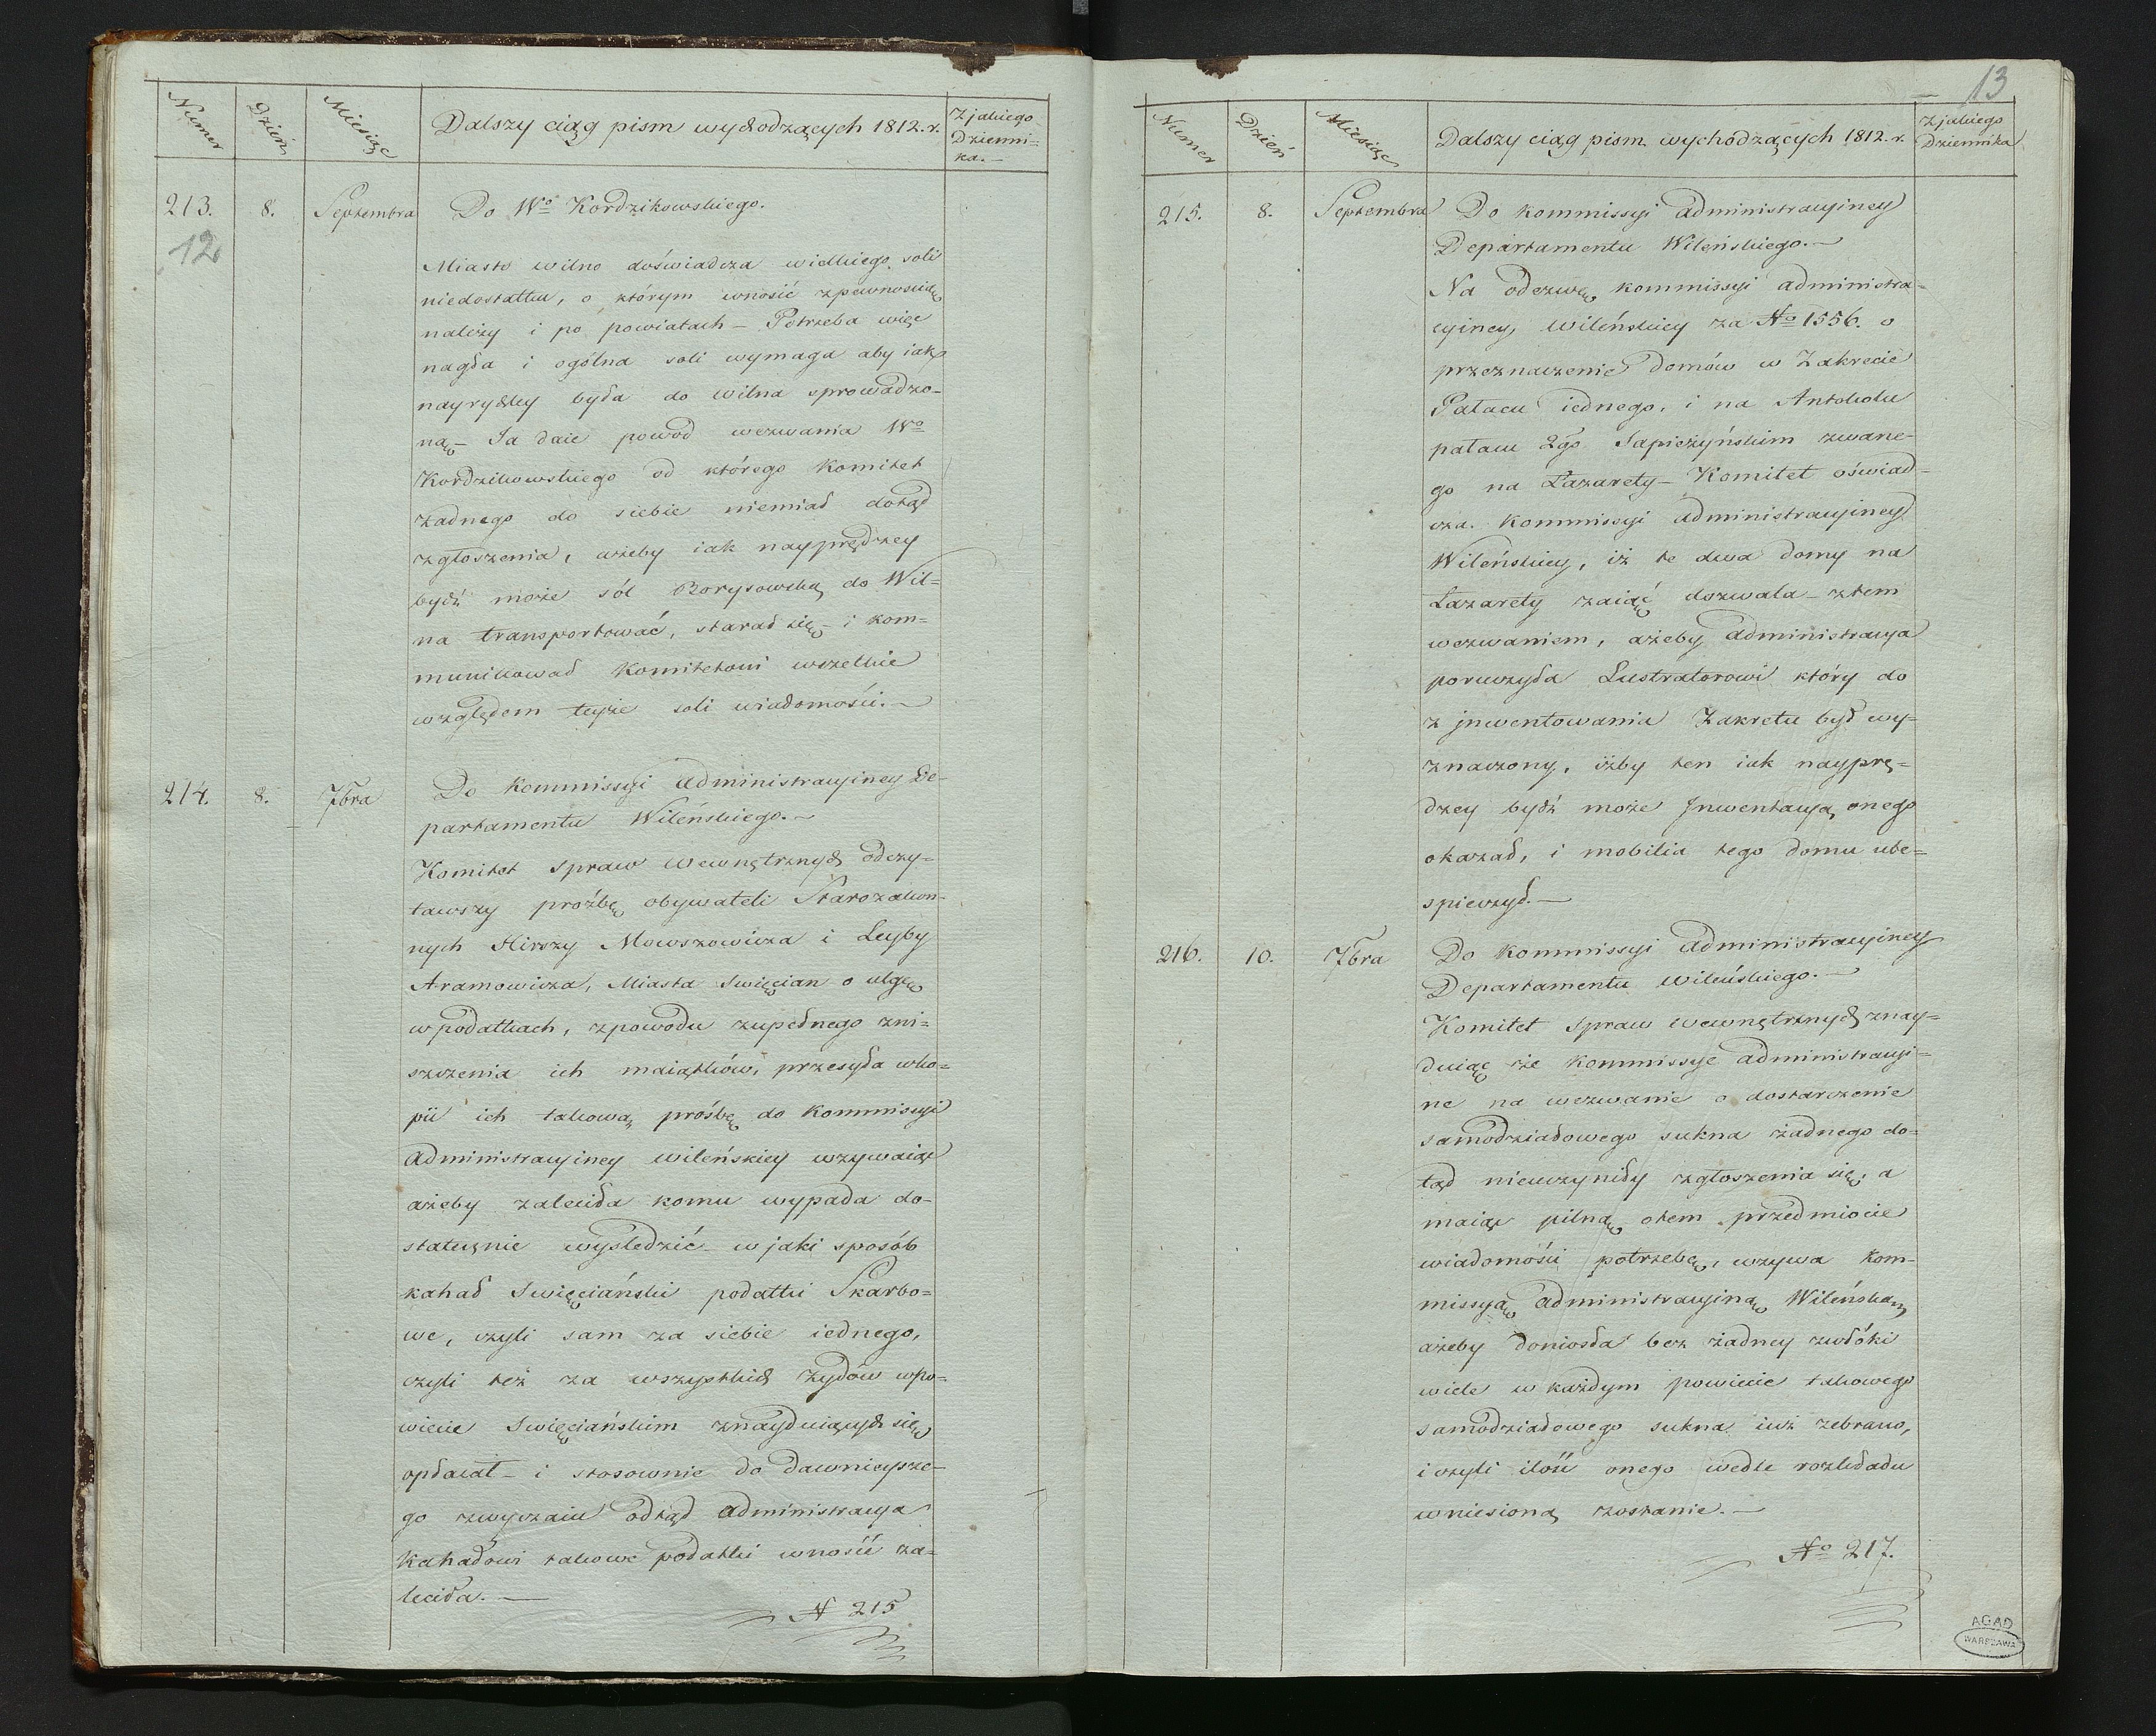 Numer
Dzień
Miesiąc
Dalszy ciąg pism wychodzących 1812. r.
Z jakiego
Dzienni=
ka.—
213.
8.
Septembra
12
Do Wo Kordzikowskiego.
Miasto wilno doświadcza wielkiego soli
niedostatku, o którym wnosić zpewnoscią
należy i po powiatach – Potrzeba więc
nagła i ogólna soli wymaga aby iak
nayrychley była do wilna sprowadzo=
ną – Ta daie powod wezwania Wo
Kordzikowskiego od którego Komitet
żadnego do siebie niemiał dotąd
zgłoszenia, ażeby iak nayprędzey
bydź może sól Borysowską do Wil=
na transportować, starał się – i kom=
munikował Komitetowi wszelkie
względem teyże soli wiadomości.—
214.
8.
7bra
Do Kommissyi Administracyiney De=
partamentu Wileńskiego.—
Komitet Spraw Wewnętrznych odczy=
tawszy prożbę obywateli Starozakon=
nych Hirszy Mowszowicza i Leyby
Aramowicza, Miasta Święcian o ulgę
w podatkach, zpowodu zupełnego zni=
szczenia ich maiątków, przesyła wko=
pii ich takową prośbę do Kommissyi
Administracyiney wileńskiey wzywaiąc
ażeby zaleciła komu wypada do=
statecznie wyśledzić – w jaki sposób
kahał Swięciański podatki Skarbo=
we, czyli sam za siebie iednego,
czyli też za wszystkich Żydów wpo=
wiecie Swięciańskim znayduiących się
opłacał – i stosownie do dawnieysze=
go zwyczaiu odtąd Administracya
Kahałowi takowe podatki wnosić za=
leciła.—
N 215
13
Numer
Dzień
Miesiąc
Dalszy ciąg pism wychodzących 1812. r.
Z jakiego
Dziennika
215.
8.
Septembra
Do Kommissyi Administracyiney
Departamentu Wileńskiego.—
Na odezwę kommissyi Administra=
cyiney Wileńskiey za No 1556. o
przeznaczenie domów w Zakrecie
Pałacu iednego, i na Antokolu
pałacu 2go Sapieżyńskim zwane=
go na Lazarety – Komitet oświad=
cza Kommissyi Administracyiney
Wileńskiey, iż te dwa domy na
Lazarety zaiąć dozwala – ztem
wezwaniem, ażeby Administracya
poruczyła Lustratorowi który do
z jnwentowania Zakretu był wy=
znaczony, iżby ten iak nayprę=
dzey bydź może Jnwentacyą onego
okazał, i mobilia tego domu ube=
spieczył.—
216.
10.
7bra
Do Kommissyi Administracyiney
Departamentu Wileńskiego.—
Komitet Spraw Wewnętrznych znay=
duiąc że Kommissye Administracyi=
ne na wezwanie o dostarczenie
samodziałowego sukna żadnego do=
tąd nieuczyniły zgłoszenia się, a
maiąc pilną otem przedmiocie
wiadomości potrzebę, wzywa Kom=
missyą Administracyiną Wileńską,
ażeby doniosła bez żadney zwłóki
wiele w każdym powiecie takowego
samodziałowego sukna iuż zebrano,
i czyli ilość onego wedle rozkładu
wniesioną zostanie.—
No 217.
AGAD
WARSZAWA